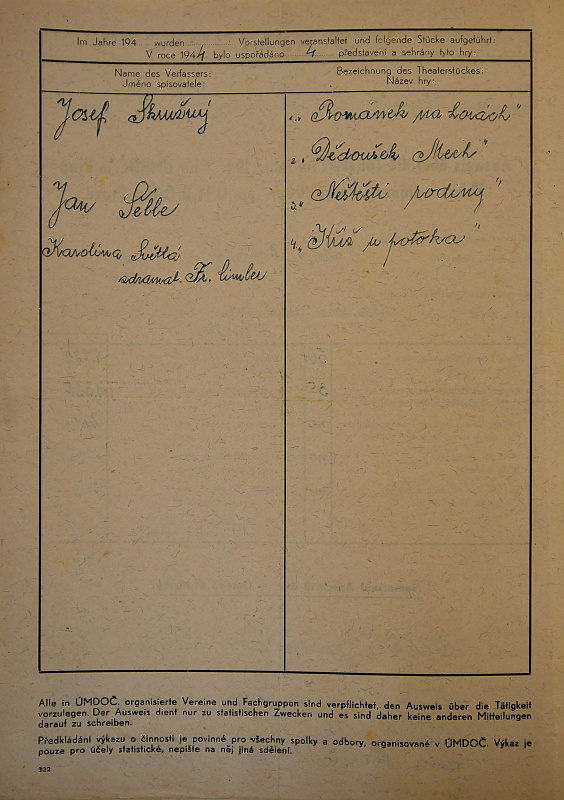 Im Jahre 194 wurden Vorstellungen veranstaltet und folgende Stücke aufgeführt:
V roce 1944 bylo uspořádáno 4 představení a sehrány tyto hry:
Name des Verfassers:
Jméno spisovatele:
Bezeichnung des Theaterstückes:
Název hry:
Josef Skružný
1., „Románek na horách"
2. „Dědoušek Mech"
Jan Sélle
3. „Neštěstí rodiny"
Karolina Světlá
zdramat. Fr. Cimler
4. „Kříž u potoka"
Alle in ÚMDOČ. organisierte Vereine und Fachgruppen sind verpflichtet, den Ausweis über die Tätigkeit
vorzulegen. Der Ausweis dient nur zu statistischen Zwecken und es sind daher keine anderen Mitteilungen
darauf zu schreiben.
Předkládání výkazu o činnosti je povinné pro všechny spolky a odbory, organisované v ÚMDOČ. Výkaz je
pouze pro účely statistické, nepište na něj jiná sdělení.
322